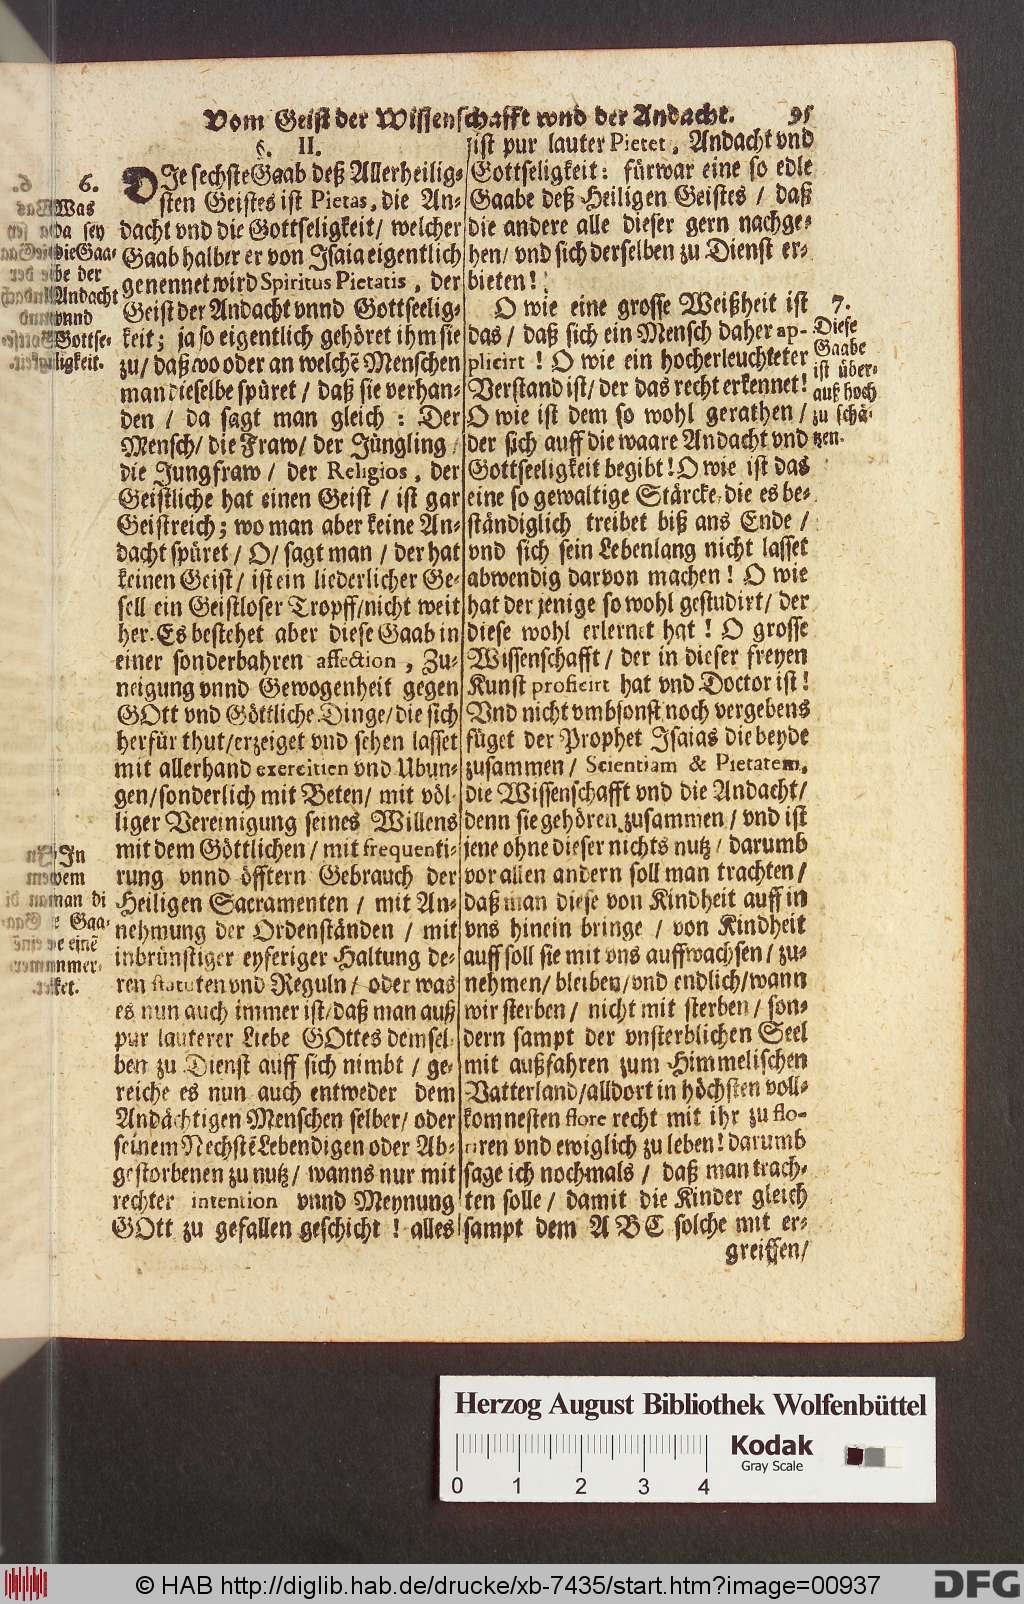 Vom Geist der Wissenschafft vnd der Andacht. 95
§. II.
6.
Was
da sey
die Gaa-
be der
Andacht
vnnd
Gottse-
ligkeit.
DIe sechste Gaab deß Allerheilig-
sten Geistes ist Pietas, die An-
dacht vnd die Gottseligkeit/ welcher
Gaab halber er von Isaia eigentlich
genennet wird Spiritus Pietatis, der
Geist der Andacht vnnd Gottseelig-
keit; ja so eigentlich gehöret ihm sie
zu/ daß wo oder an welchẽ Menschen
man dieselbe spüret/ daß sie verhan-
den/ da sagt man gleich: Der
Mensch/ die Fraw/ der Jüngling/
die Jungfraw/ der Religios, der
Geistliche hat einen Geist/ ist gar
Geistreich; wo man aber keine An-
dacht spüret/ O/ sagt man/ der hat
keinen Geist/ ist ein liederlicher Ge-
sell ein Geistloser Tropff/nicht weit
her. Es bestehet aber diese Gaab in
einer sonderbahren affection, Zu-
neigung vnnd Gewogenheit gegen
GOtt vnd Göttliche Dinge/ die sich
herfür thut/erzeiget vnd sehen lasset
mit allerhand exercitien vnd Ubun-
gen/sonderlich mit Beten/ mit völ-
liger Vereinigung seines Willens
mit dem Göttlichen/ mit frequenti-
rung vnnd öfftern Gebrauch der
Heiligen Sacramenten/ mit An-
nehmung der Ordenständen/ mit
inbrünstiger eyferiger Haltung de-
ren statuten vnd Reguln/ oder was
es nun auch immer ist/daß man auß
pur lauterer Liebe GOttes demsel-
ben zu Dienst auff sich nimbt/ ge-
reiche es nun auch entweder dem
Andächtigen Menschen selber/ oder
seinem Nechstẽ Lebendigen oder Ab-
gestorbenen zu nutz/ wanns nur mit
rechter intention vnnd Meynung
GOtt zu gefallen geschicht! alles
In
wem
man di
Gaa-
be einẽ
mer-
cket.
ist pur lauter Pietet, Andacht vnd
Gottseligkeit: fürwar eine so edle
Gaabe deß Heiligen Geistes/ daß
die andere alle dieser gern nachge-
hen/ vnd sich derselben zu Dienst er-
bieten!
O wie eine grosse Weißheit ist
das/ daß sich ein Mensch daher ap-
plicirt! O wie ein hocherleuchteter
Verstand ist/ der das recht erkennet!
O wie ist dem so wohl gerathen/
der sich auff die waare Andacht vnd
Gottseeligkeit begibt! O wie ist das
eine so gewaltige Stärcke, die es be-
ständiglich treibet biß ans Ende/
vnd sich sein Lebenlang nicht lasset
abwendig darvon machen! O wie
hat der jenige so wohl gestudirt/ der
diese wohl erlernet hat! O grosse
Wissenschafft/ der in dieser freyen
Kunst proficirt hat vnd Doctor ist!
Vnd nicht vmbsonst noch vergebens
füget der Prophet Isaias die beyde
zusammen/ Scientiam & Pietatem,
die Wissenschafft vnd die Andacht/
denn sie gehören zusammen/ vnd ist
jene ohne dieser nichts nutz/ darumb
vor allen andern soll man trachten/
daß man diese von Kindheit auff in
vns hinein bringe/ von Kindheit
auff soll sie mit vns auffwachsen/ zu-
nehmen/ bleiben/ vnd endlich/wann
wir sterben/ nicht mit sterben/ son-
dern sampt der vnsterblichen Seel
mit außfahren zum Himmelischen
Vatterland/alldort in höchsten voll-
komnesten flore recht mit ihr zu flo-
riren vnd ewiglich zu leben! darumb
sage ich nochmals/ daß man trach-
ten solle/ damit die Kinder gleich
sampt dem ABC solche mit er-
greiffen/
7.
Diese
Gaabe
ist über-
auß hoch
zu schä-
tzen.
Herzog August Bibliothek Wolfenbüttel
Kodak
Gray Scale
0 1 2 3 4
© HAB http://diglib.hab.de/drucke/xb-7435/start.htm?image=00937
DFG